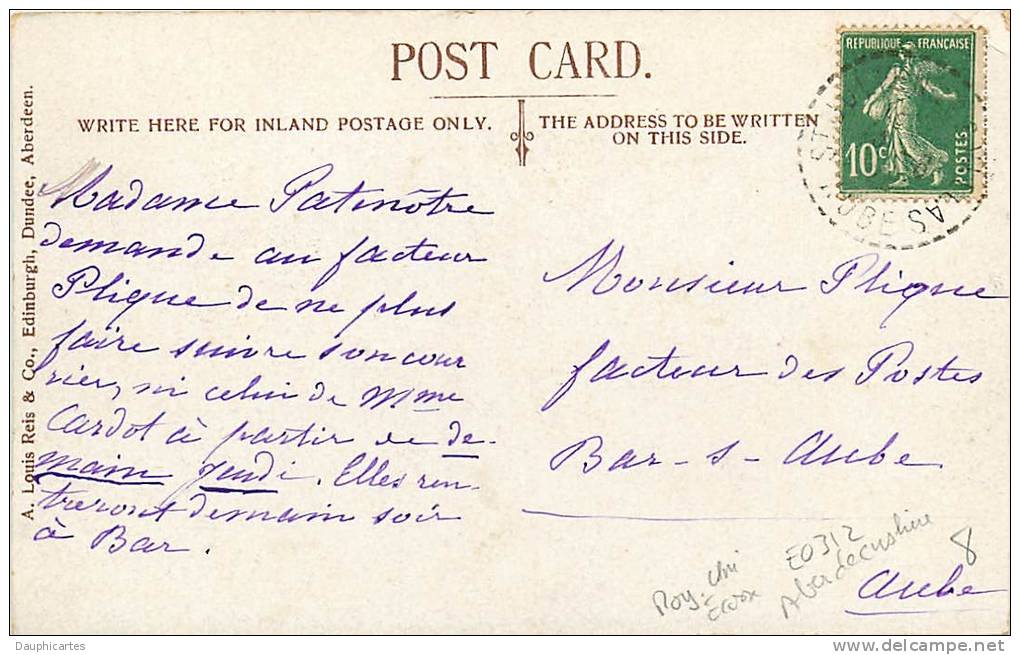 POST CARD.
WRITE HERE FOR INLAND POSTAGE ONLY.
THE ADDRESS TO BE WRITTEN
ON THIS SIDE.
A. Louis Reis & Co., Edinburgh, Dundee, Aberdeen.
REPUBLIQUE FRANÇAISE
10c
POSTES
AUBE
Madame Patenôtre
demande au facteur
Plique de ne plus
faire suivre son cour
rier, ni celui de Mme
Cardot à partir de de-
main jeudi. Elles ren-
treront demain soir
à Bar.
Monsieur Plique
facteur des Postes
Bar-s-Aube
Aube
Roy-Uni
Ecosse
E0312
Aberdeenshire
8
Dauphicartes
www.delcampe.net